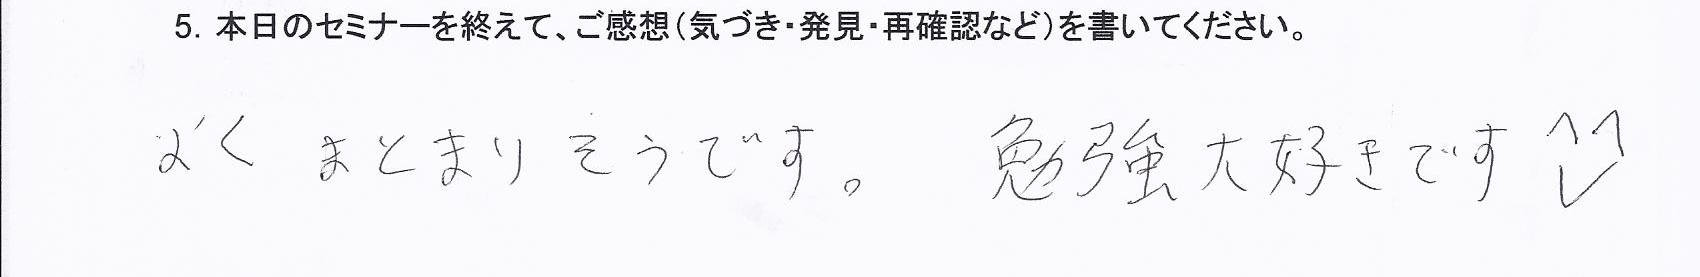 5. 本日のセミナーを終えて、ご感想(気づき・発見・再確認など)を書いてください。
よく まとまりそうです。 勉強大好きです